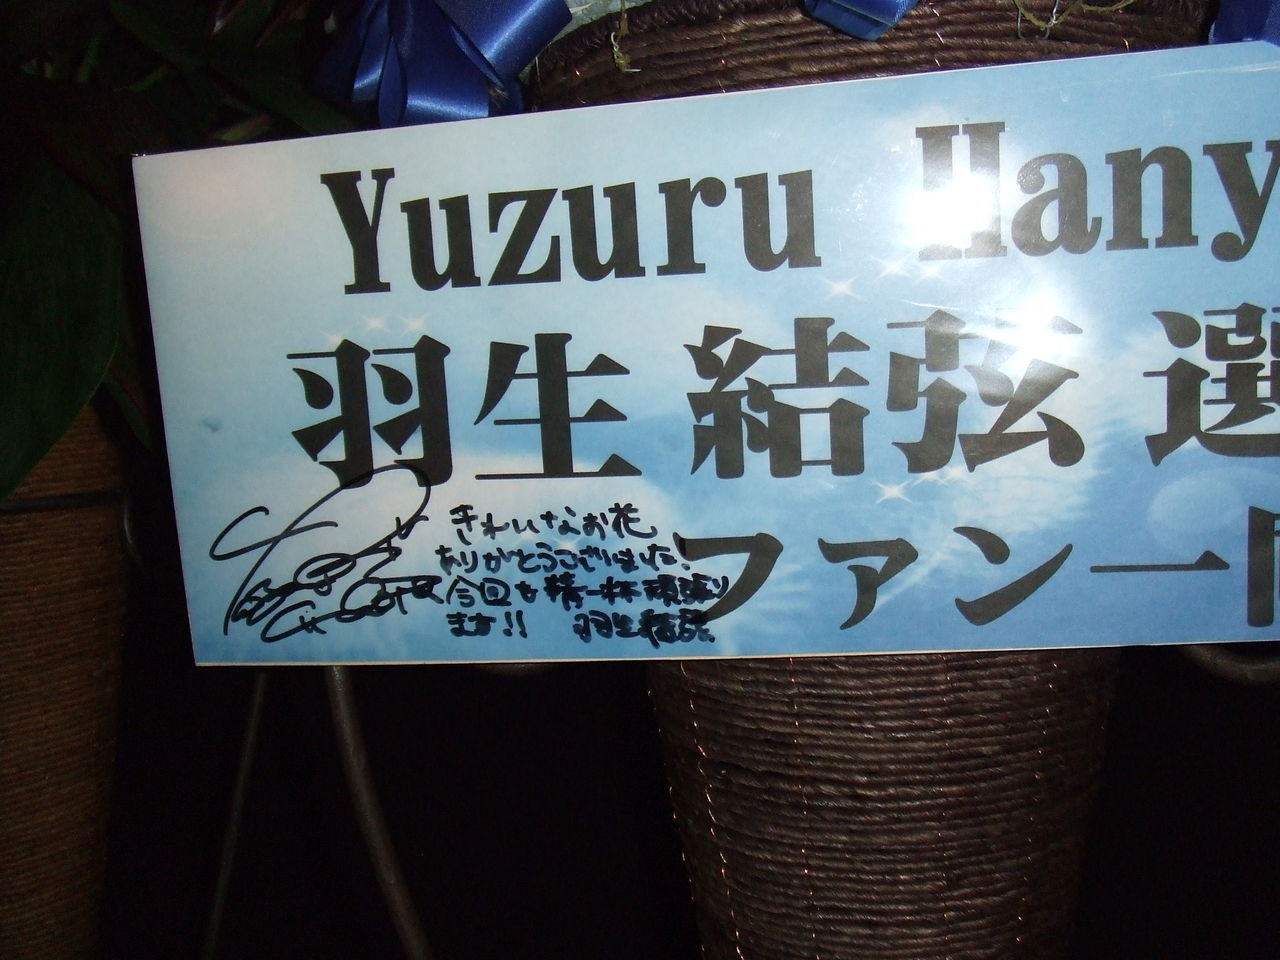 Yuzuru Hany
羽生結弦選
ファン一同
きれいなお花
ありがとうございました!
今回も精一杯頑張り
ます!! 羽生結弦